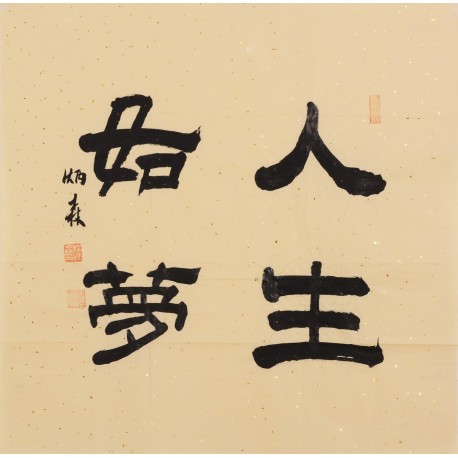 人生
如夢
炳森